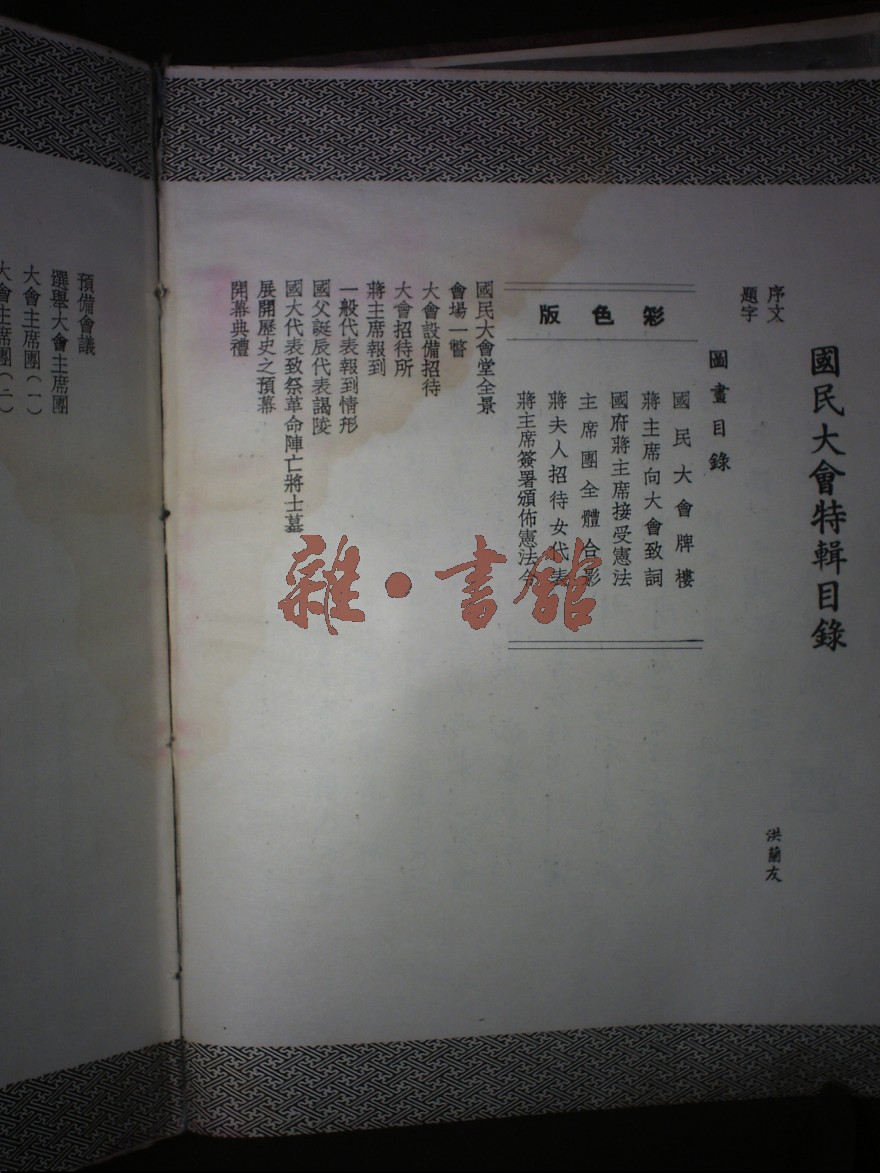 國民大會特輯目錄
序文 洪蘭友
題字
圖畫目錄
彩色版
國民大會牌樓
蔣主席向大會致詞
國府蔣主席接受憲法
主席團全體合影
蔣夫人招待女代表
蔣主席簽署頒佈憲法令
國民大會堂全景
會場一瞥
大會設備招待
大會招待所
蔣主席報到
一般代表報到情形
國父誕辰代表謁陵
國大代表致祭革命陣亡將士墓
展開歷史之預幕
開幕典禮
預備會議
選舉大會主席團
大會主席團(一)
大會主席團(二)
雜·書館